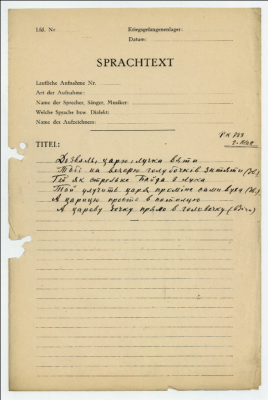 Lfd. Nr.
Kriegsgefangenenlager:
Datum:
SPRACHTEXT
Lautliche Aufnahme Nr.
Art der Aufnahme:
Name der Sprecher, Sänger, Musiker:
Welche Sprache bzw. Dialekt:
Name des Aufzeichners:
PK
TITEL:
Дозволь, царю, лучка взяти
Тобі на вечерю голубочків знімати
Гей як стрельне Байда з лука
Той улучить царя проміж сами вуха
А царицю просто в потилицю
А цареву дочку прямо в головочку